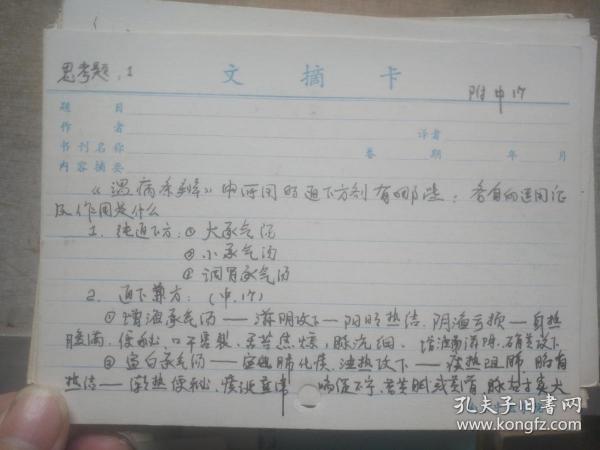 思考题:1
文摘卡
附中17
题目
作者
译者
书刊名称
卷 期 年 月
内容摘要
《温病条辨》中所用的通下方剂有哪些:各有何适用证
及作用是什么
1. 纯通下方:① 大承气汤
② 小承气汤
③ 调胃承气汤
2. 通下兼方:(中.17)
① 增液承气汤 — 滋阴攻下 — 阳明热结,阴液亏损 — 身热
腹满,便秘,口干唇裂,舌苔焦燥,脉沉细.
② 宣白承气汤 — 宣肺化痰,泄热攻下 — 痰热阻肺,肠有
热结 — 潮热便秘,痰涎壅滞 喘促不宁,苔黄腻或黄滑,脉右寸实大
孔夫子旧书网
www.kongfz.com